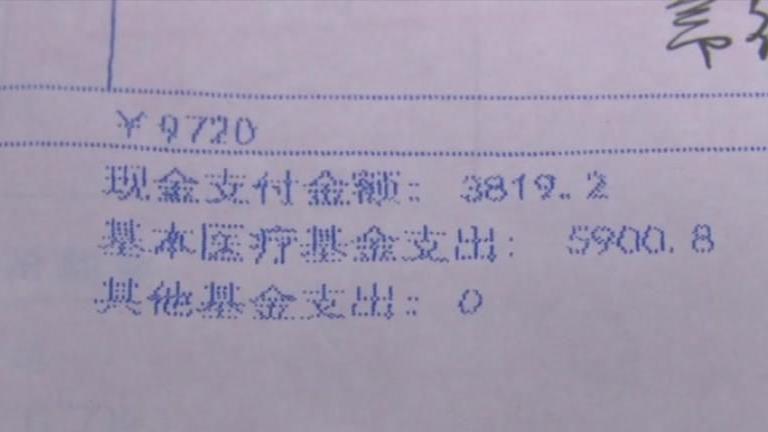 ¥9720
现金支付金额: 3819.2
基本医疗基金支出: 5900.8
其他基金支出: 0